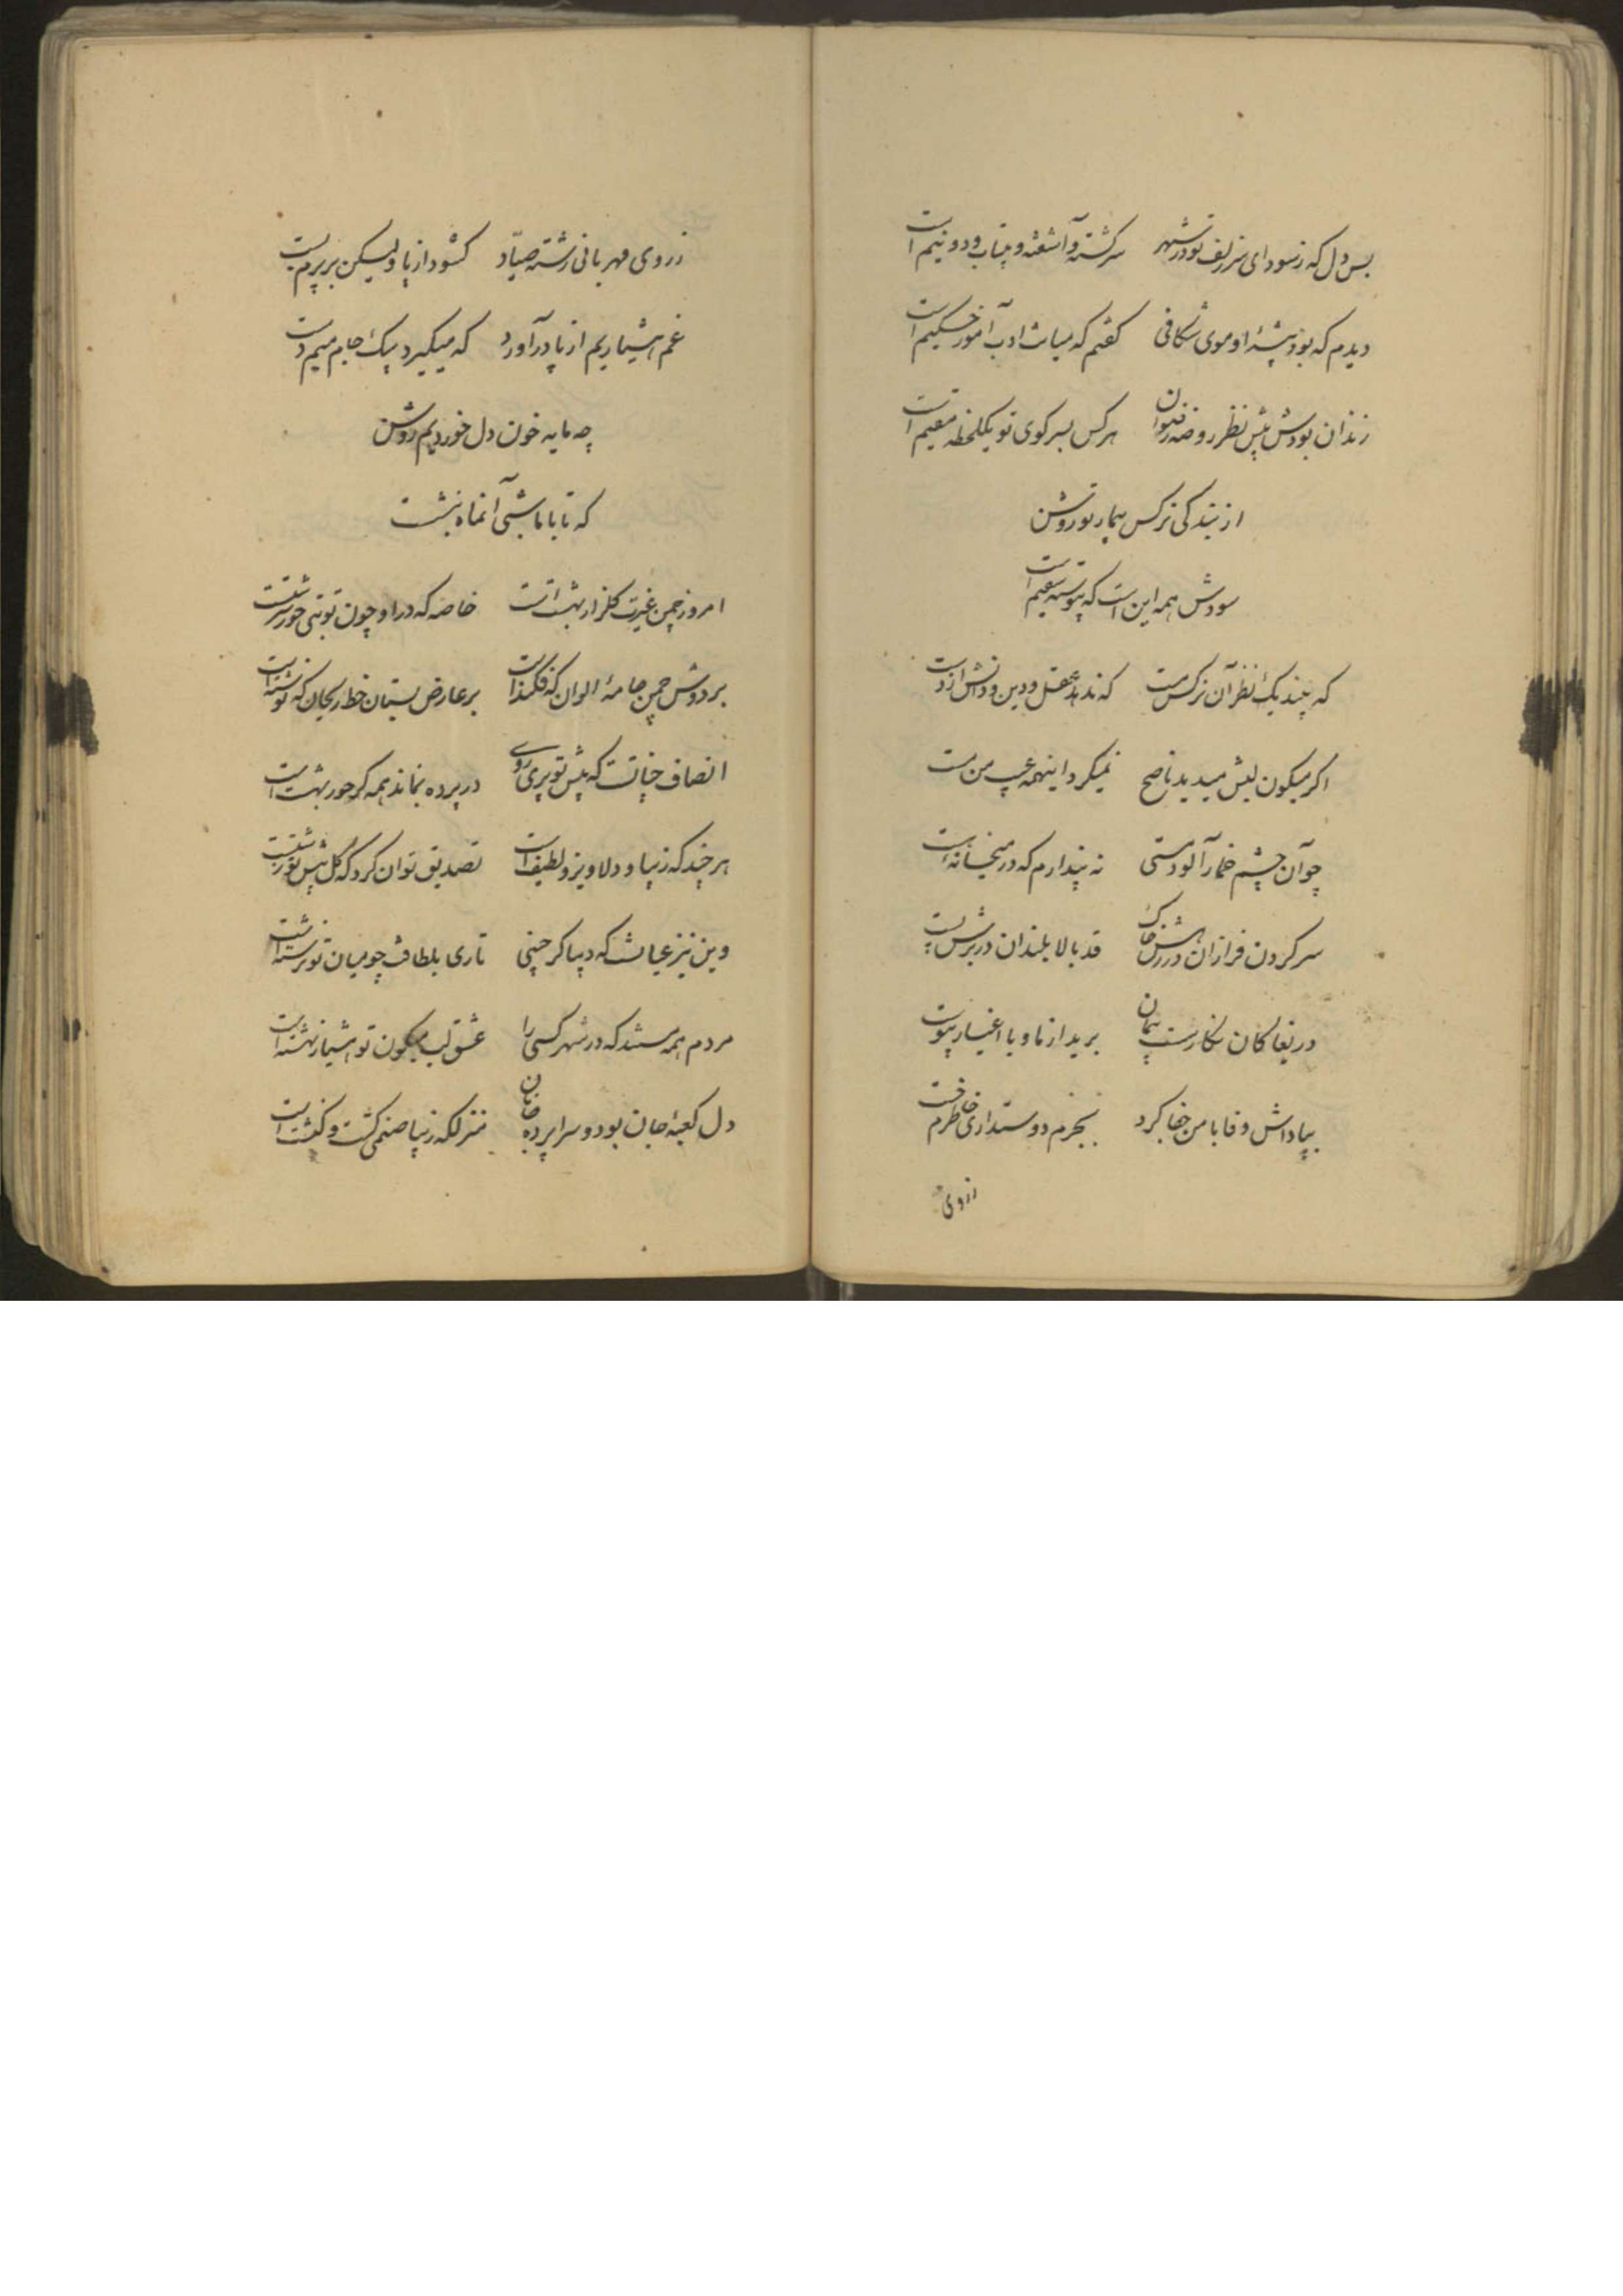 بس دل که ز سودای سر زلف تو در شهر سرگشته و آشفته و بیتاب و دو نیم است
دیدم که بود پیشهٔ او موی شکافی گفتم که میانت ادب آموز حکیم است
زندان بودش پیش نظر روضه رضوان هر کس بسر کوی تو یکلحظه مقیم است
از بندگی نرکس بیمار تو روشن
سودش همه این است که پیوسته سقیم است
که بیند یک نظر آن نرکس مست که ندهد عقل و دین و دانش از دست
اکر میکون لبش میدید ناصح نمیکرد اینهمه عیب من مست
چو آن چشم خمار آلود مستی نه پندارم که در میخانه هست
سر کردن فرازان در رهش خاک قد بالا بلندان در برش پست
دریغا کان نکار سست پیمان برید از ما و با اغیار پیوست
بپاداش وفا با من جفا کرد بجرم دوستداری خاطرم خست
ز روی
ز روی مهربانی رشته صیّاد کشود از پا ولیکن بر پرم بست
غم هشیاریم از پا در آورد که میکیرد بیک جام میم دست
چه مایه خون دل خوردیم روشن
که تا با ما شبی آنماه بنشست
امروز چمن غیرت کلزار بهشت است خاصه که در او چون تو بتی حور سرشتست
بر دوش چمن جامهٔ الوان که فکندست بر عارض بستان خط ریحان که نوشته است
انصاف چنانست که پیش تو پری روی در پرده بماند همه کر حور بهشت است
هر چند که زیبا و دلاویز و لطیف است تصدیق توان کرد که کل پیش تو زشتست
وین نیز عیانست که دیبا کر چینی تاری بلطافت چو میان تو نرشته است
مردم همه مستند که در شهر کسی را عشق لب میکون تو هشیار نهشته است
دل کعبهٔ جان بود و سراپرده جانان منزلکه زیبا صنمی کشت و کنشت است